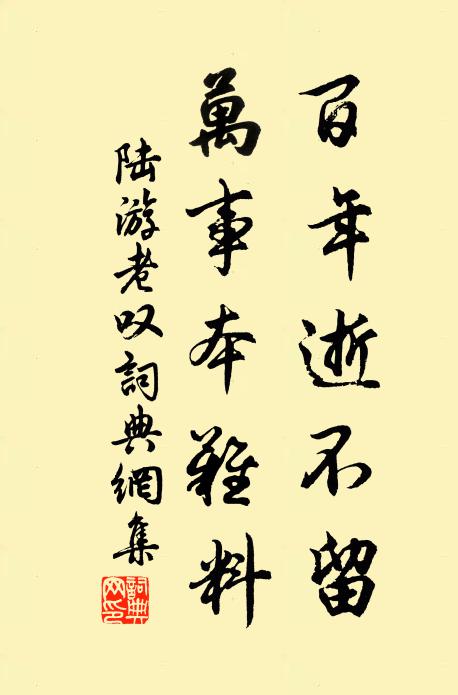 百年逝不留
萬事本難料
陆游老叹詞典網集
詞典網印